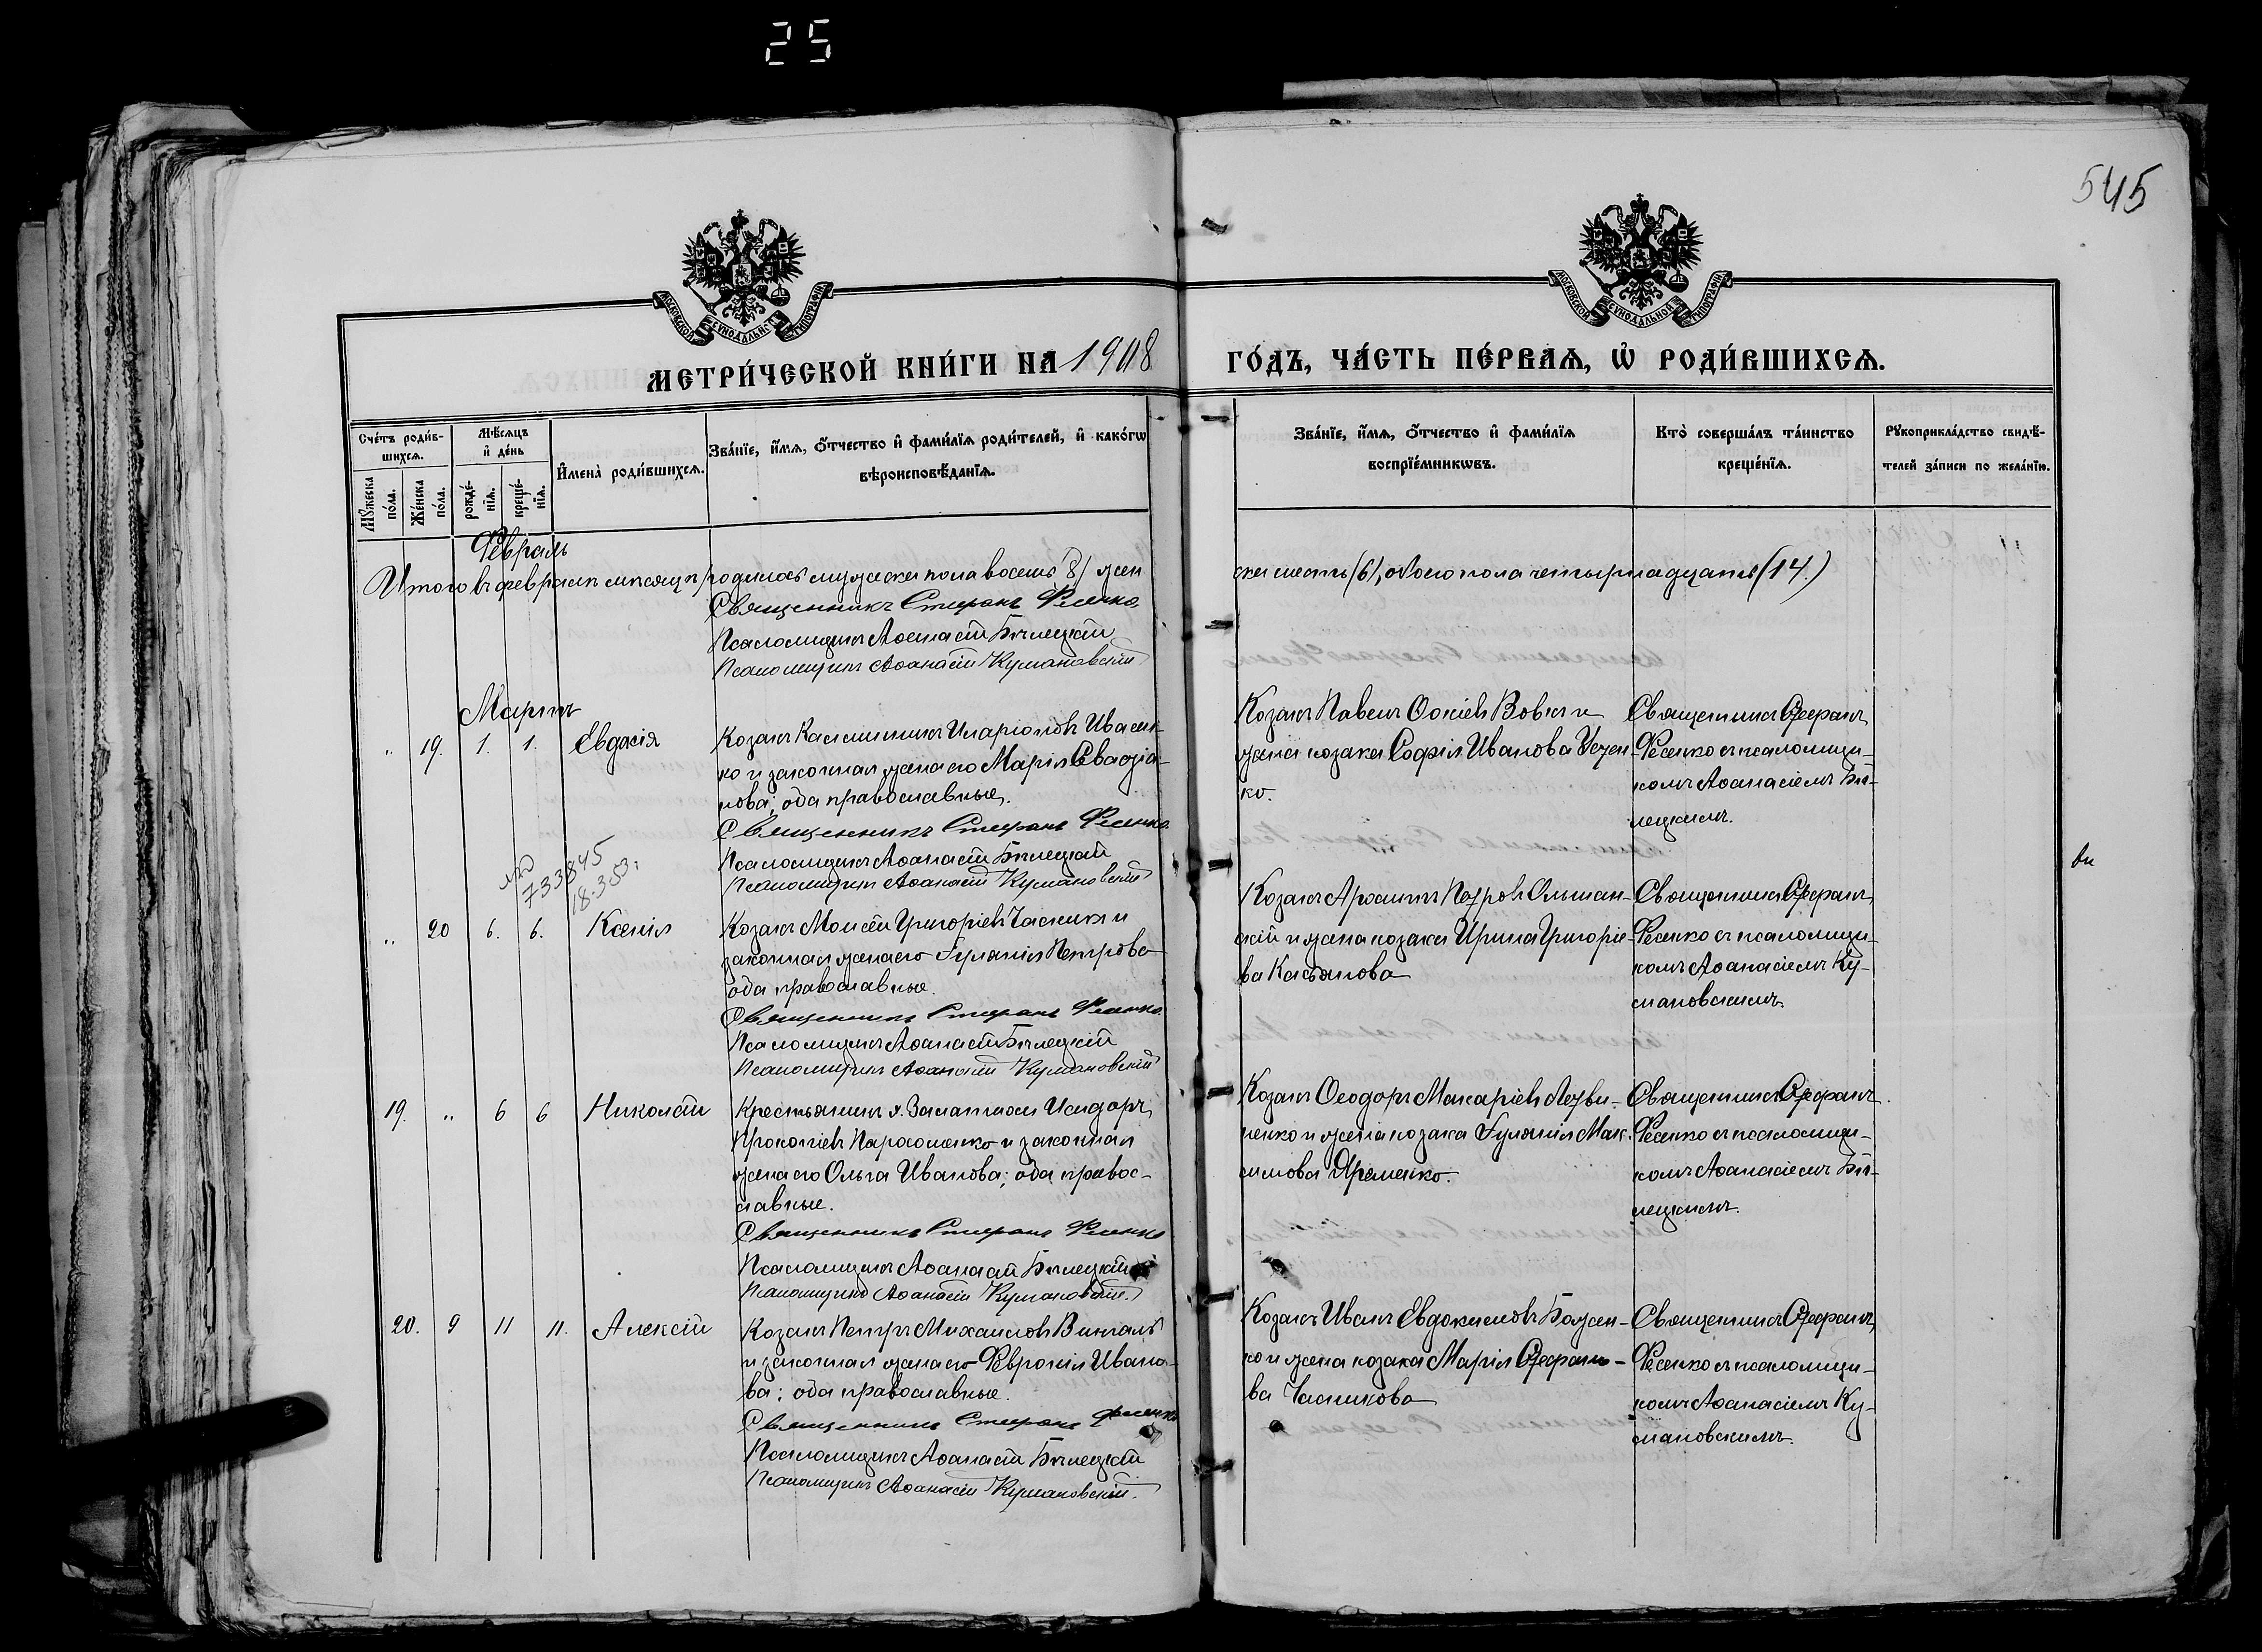 25
545
МОСКОВСКОЙ СѴНОДАЛЬНОЙ ТИПОГРАФІИ
МОСКОВСКОЙ СѴНОДАЛЬНОЙ ТИПОГРАФІИ
МЕТРИ́ЧЕСКОЙ КНИ́ГИ НА 1908 ГО́ДЪ, ЧА́СТЬ ПЕ́РВАѦ, Ѡ҆ РОДИ́ВШИХСѦ.
Сче́тъ роди́в-
шихсѧ.
Мꙋ́жеска по́ла.
Же́нска по́ла.
Мѣ́сѧцъ и҆ де́нь
рожде́-нїѧ.
креще́-нїѧ.
И҆мена̀ роди́вшихсѧ.
Зва́нїе, и҆́мѧ, ѻ҆́тчество и҆ фами́лїѧ роди́телей, и҆ како́гѡ
вѣроисповѣ́данїѧ.
Зва́нїе, и҆́мѧ, ѻ҆́тчество и҆ фами́лїѧ
воспрїе́мникѡвъ.
Кто̀ соверша́лъ та́инство
креще́нїѧ.
Рꙋкоприкла́дство свидѣ́-
телей за́писи по жела́нїю.
Февраль
Итого въ феврале месяце родилось мужеска пола восемь (8) жен
ска шесть (6), обоего пола четырнадцать (14.)
Священникъ Стефанъ Фесенко
Псаломщикъ Аѳанасій Бѣлецкій
Псаломщикъ Аѳанасій Кумановскій
Мартъ
" 19. 1. 1. Евдокія
Козакъ Иларіоновъ Ивасен-
ко и законная жена его Марія
нова; оба православные.
Священникъ Стефанъ Фесенко
Псаломщикъ Аѳанасій Бѣлецкій
Псаломщикъ Аѳанасій Кумановскій
Козакъ Павелъ Вовкъ и
жена козака Софія Иванова Усен-
ко.
Священникъ Стефанъ
Фесенко съ псаломщи-
комъ Аѳанасіемъ Бѣ-
лецкимъ.
733845
18.353.
" 20 6. 6. Ксенія
Козакъ Моисей Григоріевъ Часникъ и
законная жена его Іуліанія Петрова
оба православные.
Священникъ Стефанъ Фесенко
Псаломщикъ Аѳанасій Бѣлецкій
Псаломщикъ Аѳанасій Кумановскій
Козакъ Петровъ Ольшан-
скій и жена козака Ирина Григоріе-
ва Касьянова
Священникъ Стефанъ
Фесенко съ псаломщи-
комъ Аѳанасіемъ Ку-
мановскимъ.
19. " 6 6 Николай
Крестьянинъ Исидоръ
Прокопіевъ Пархоменко и законная
жена его Ольга Иванова; оба правос-
лавные.
Священникъ Стефанъ Фесенко
Псаломщикъ Аѳанасій Бѣлецкій
Псаломщикъ Аѳанасій Кумановскій
Козакъ Ѳеодоръ Макаріевъ Литви-
ненко и жена козака Іуліанія Мак-
симова Яременко.
Священникъ Стефанъ
Фесенко съ псаломщи-
комъ Аѳанасіемъ Бѣ-
лецкимъ.
20. 9 11 11. Алексій
Козакъ Петръ Михаиловъ
и законная жена его Февронія Ивано-
ва; оба православные.
Священникъ Стефанъ Фесенко
Псаломщикъ Аѳанасій Бѣлецкій
Псаломщикъ Аѳанасій Кумановскій
Козакъ Иванъ Евдокимовъ Божен-
ко и жена козака Марія Стефано-
ва Часникова
Священникъ Стефанъ
Фесенко съ псаломщи-
комъ Аѳанасіемъ Ку-
мановскимъ.